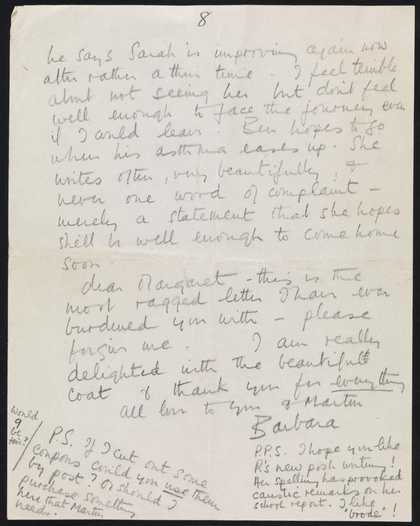 8
he says Sarah is improving again now
after rather a thin time. I feel terrible
about not seeing her but don't feel
well enough to face the journey even
if I could leave. Ben hopes to go
when his asthma eases up. She
writes often, very beautifully, &
never one word of complaint -
merely a statement that she hopes
she'll be well enough to come home
soon.
Dear Margaret - this is the
most ragged letter I have ever
burdened you with - please
forgive me. I am really
delighted with the beautiful
coat & thank you for everything
All love to you & Martin
Barbara
P.S. If I cut out some
coupons could you use them
by post? Or should I
purchase something
here that Martin
needs.
Would
9
be
P.P.S. I hope you like
R's new posh writing!
Her spelling has provoked
caustic remarks on her
school report. I like
"brode"!